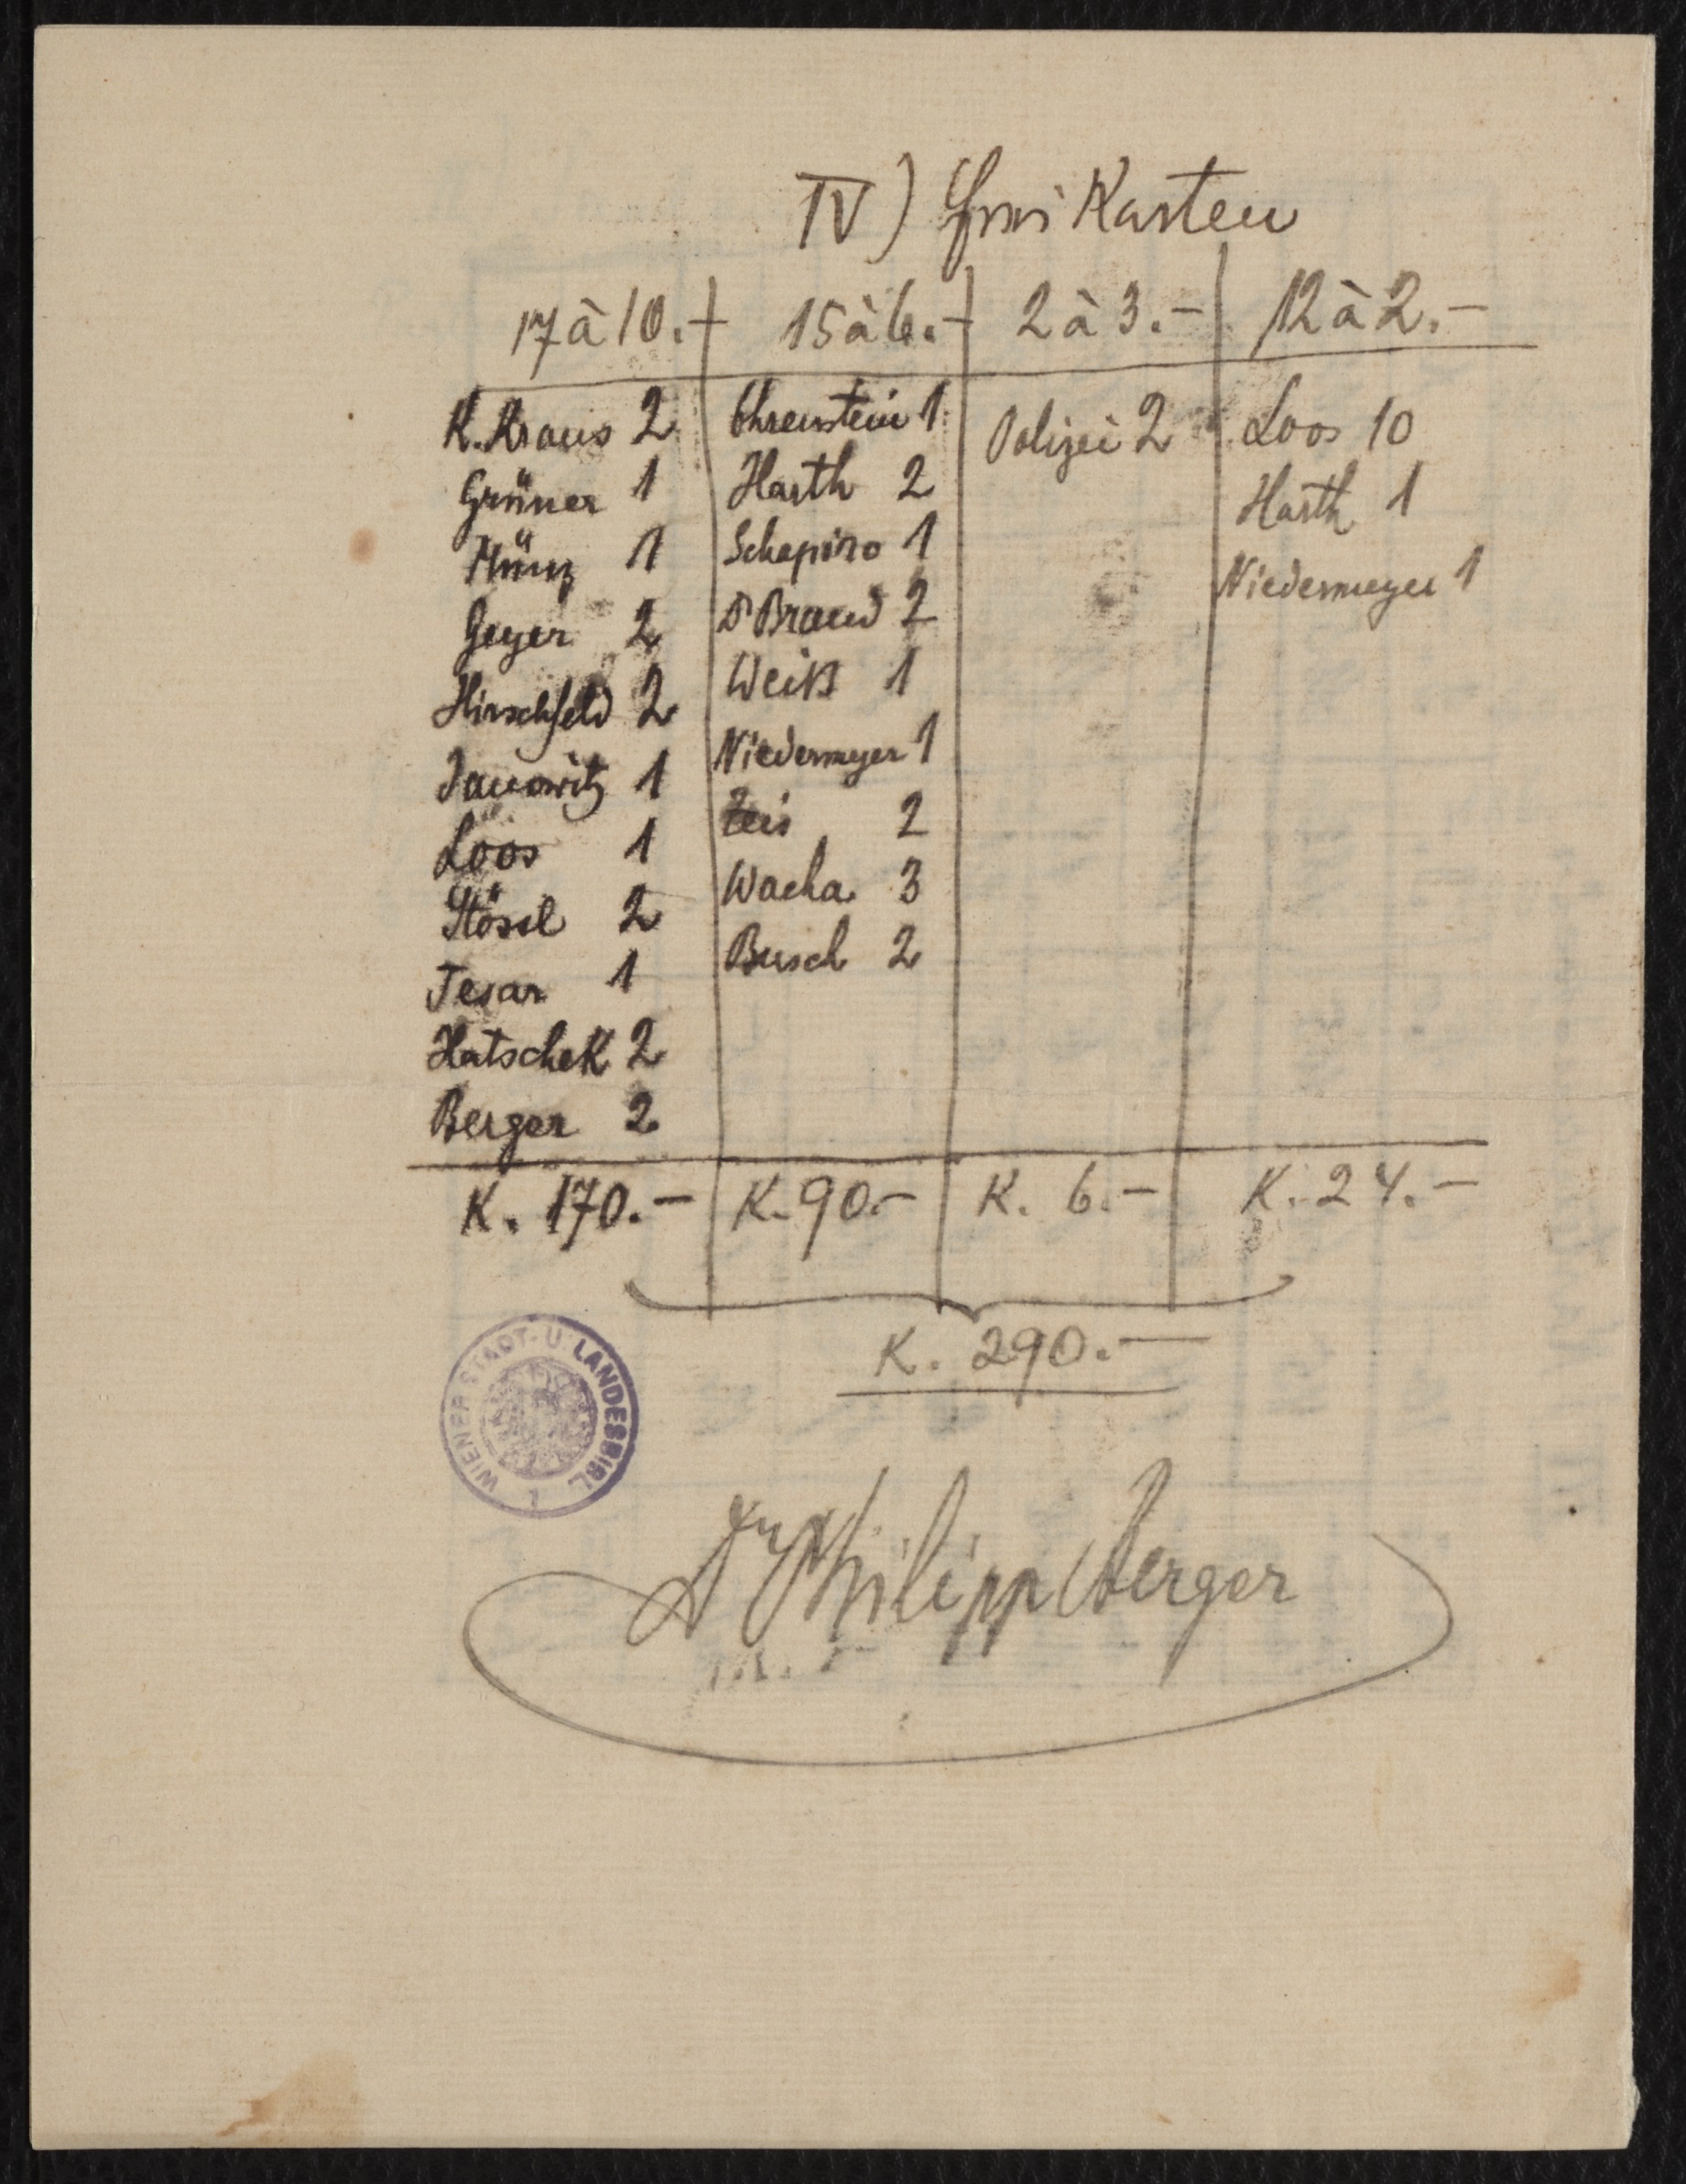 IV) Frei Karten
17 à 10.- 15 à 6.- 2 à 3.- 12 à 2.-
K. Kraus 2 Ehrenstein 1 Polizei 2 Loos 10
Grüner 1 Harth 2 Harth 1
Münz 1 Schapiro 1 Niedermeyer 1
Geyer 2 Dr Braun 2
Hirschfeld 2 Weiß 1
Janowitz 1 Niedermeyer 1
Loos 1 Zeis 2
Stössl 2 Wacha 3
Tesar 1 Busch 2
Hatschek 2
Berger 2
K. 170.- K. 90.- K. 6.- K. 24.-
K. 290.-
WIENER STADT- U. LANDESBIBL.
Dr Philipp Berger